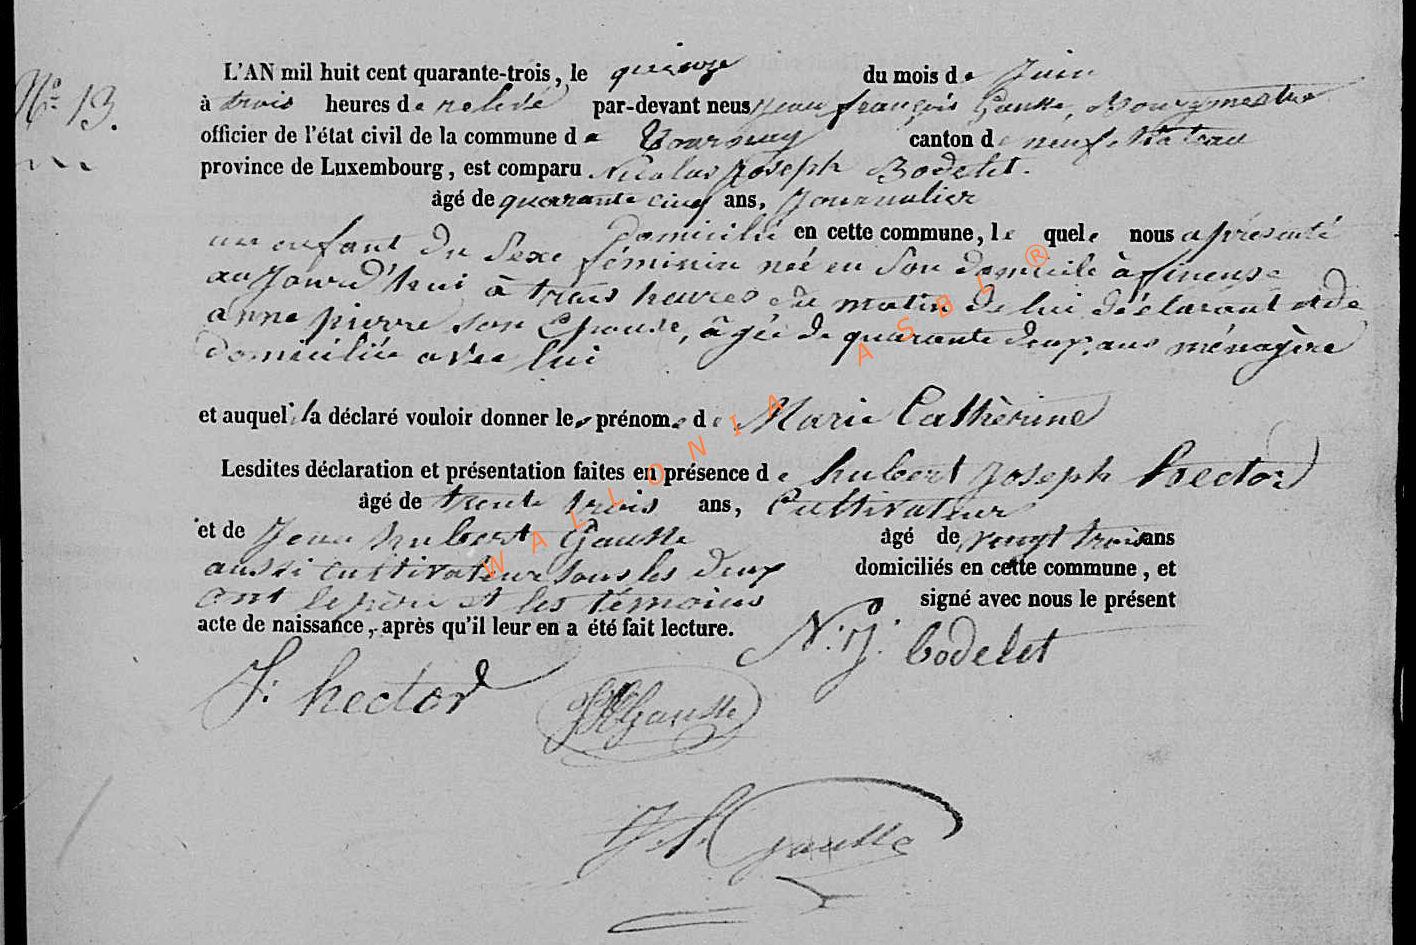 L'AN mil huit cent quarante-trois, le quinze du mois de Juin
N° 13.
à trois heures de relevé par-devant nous jean françois Gausse, Bourgmestre
officier de l'état civil de la commune de Tournay canton de neufchâteau
province de Luxembourg, est comparu Nicolas Joseph Bodelet.
âgé de quarante cinq ans, Journalier
domicilié en cette commune, le quel nous a présenté
un enfant du Sexe féminin née en Son domicile à
aujourd'hui à trois heures du matin de lui déclarant et de
anne pierre son Epouse, âgée de quarante deux ans ménagère
domiciliée avec lui
et auquel a déclaré vouloir donner les prénoms de Marie Cathèrine
Lesdites déclaration et présentation faites en présence de hubert joseph hector
âgé de trente trois ans, Cultivateur
et de Jean hubert Gausse âgé de vingt trois ans
aussi cultivateur tous les deux domiciliés en cette commune, et
ont le père et les témoins signé avec nous le présent
acte de naissance, après qu'il leur en a été fait lecture.
N: J: bodelet
J: hector
JH Gausse
J. f. Gausse
WALLONIA ASBL ®